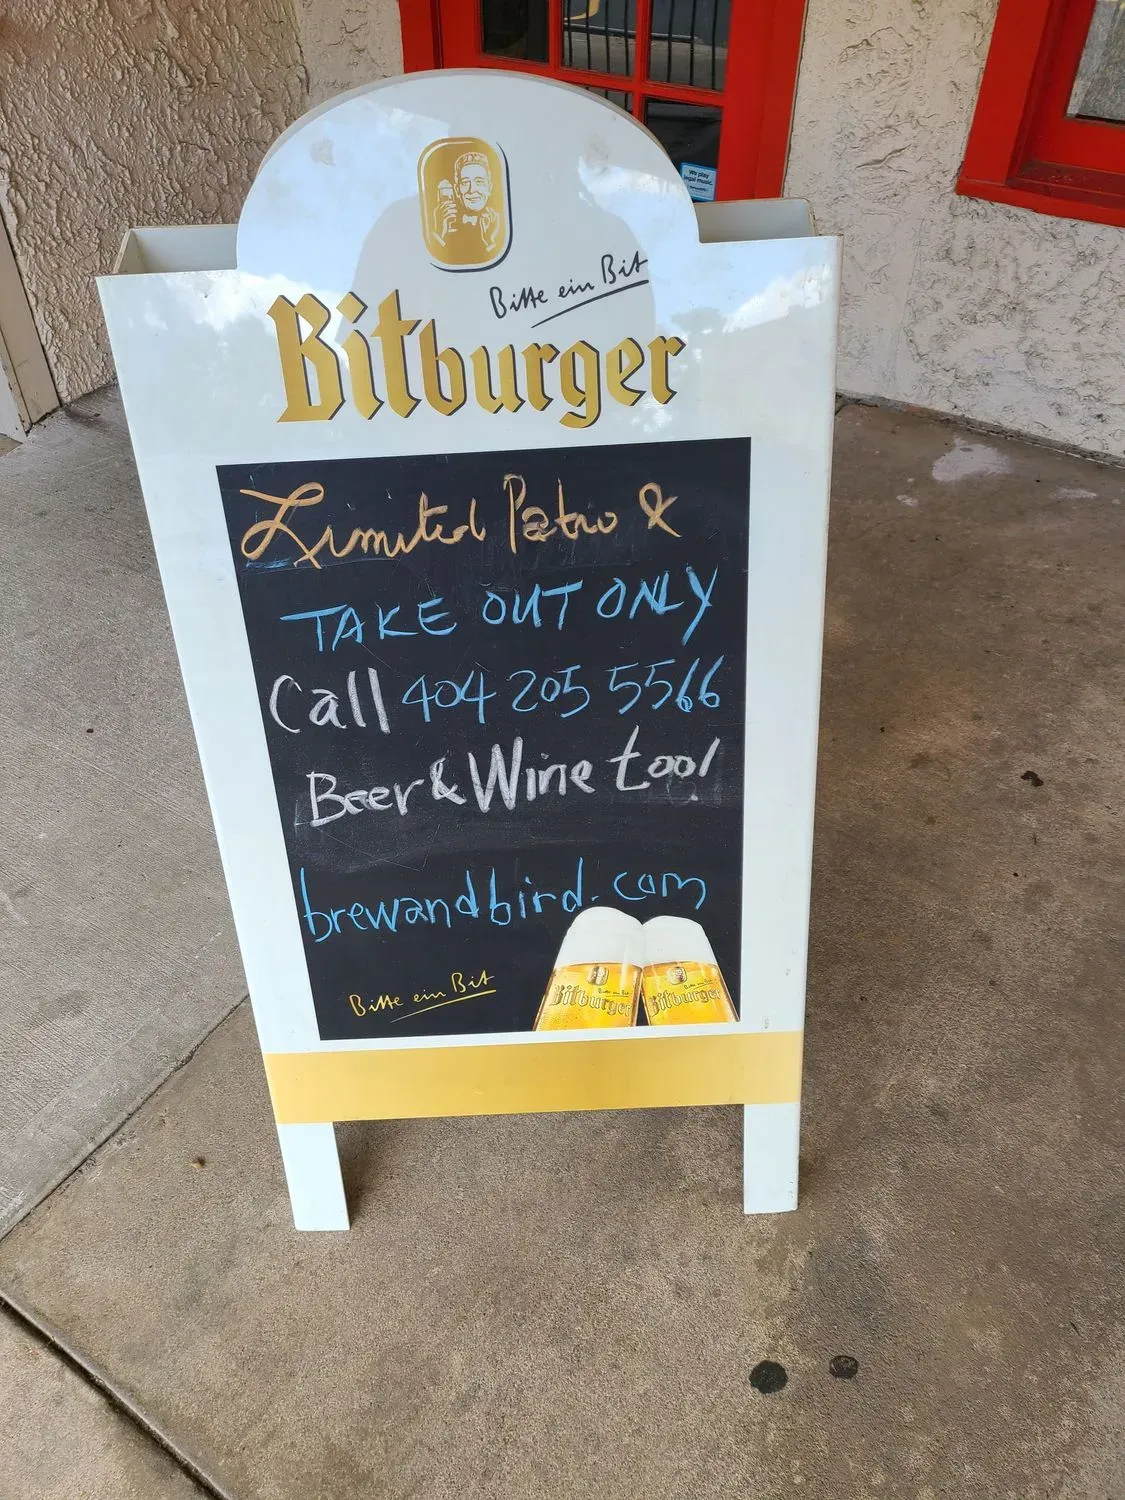 We play
legal music.
Bitte ein Bit
Bitburger
Limited Patio &
TAKE OUT ONLY
Call 404 205 5566
Beer & Wine too!
brewandbird.com
Bitte ein Bit
Bitte ein Bit
Bitburger
Bitte ein Bit
Bitburger